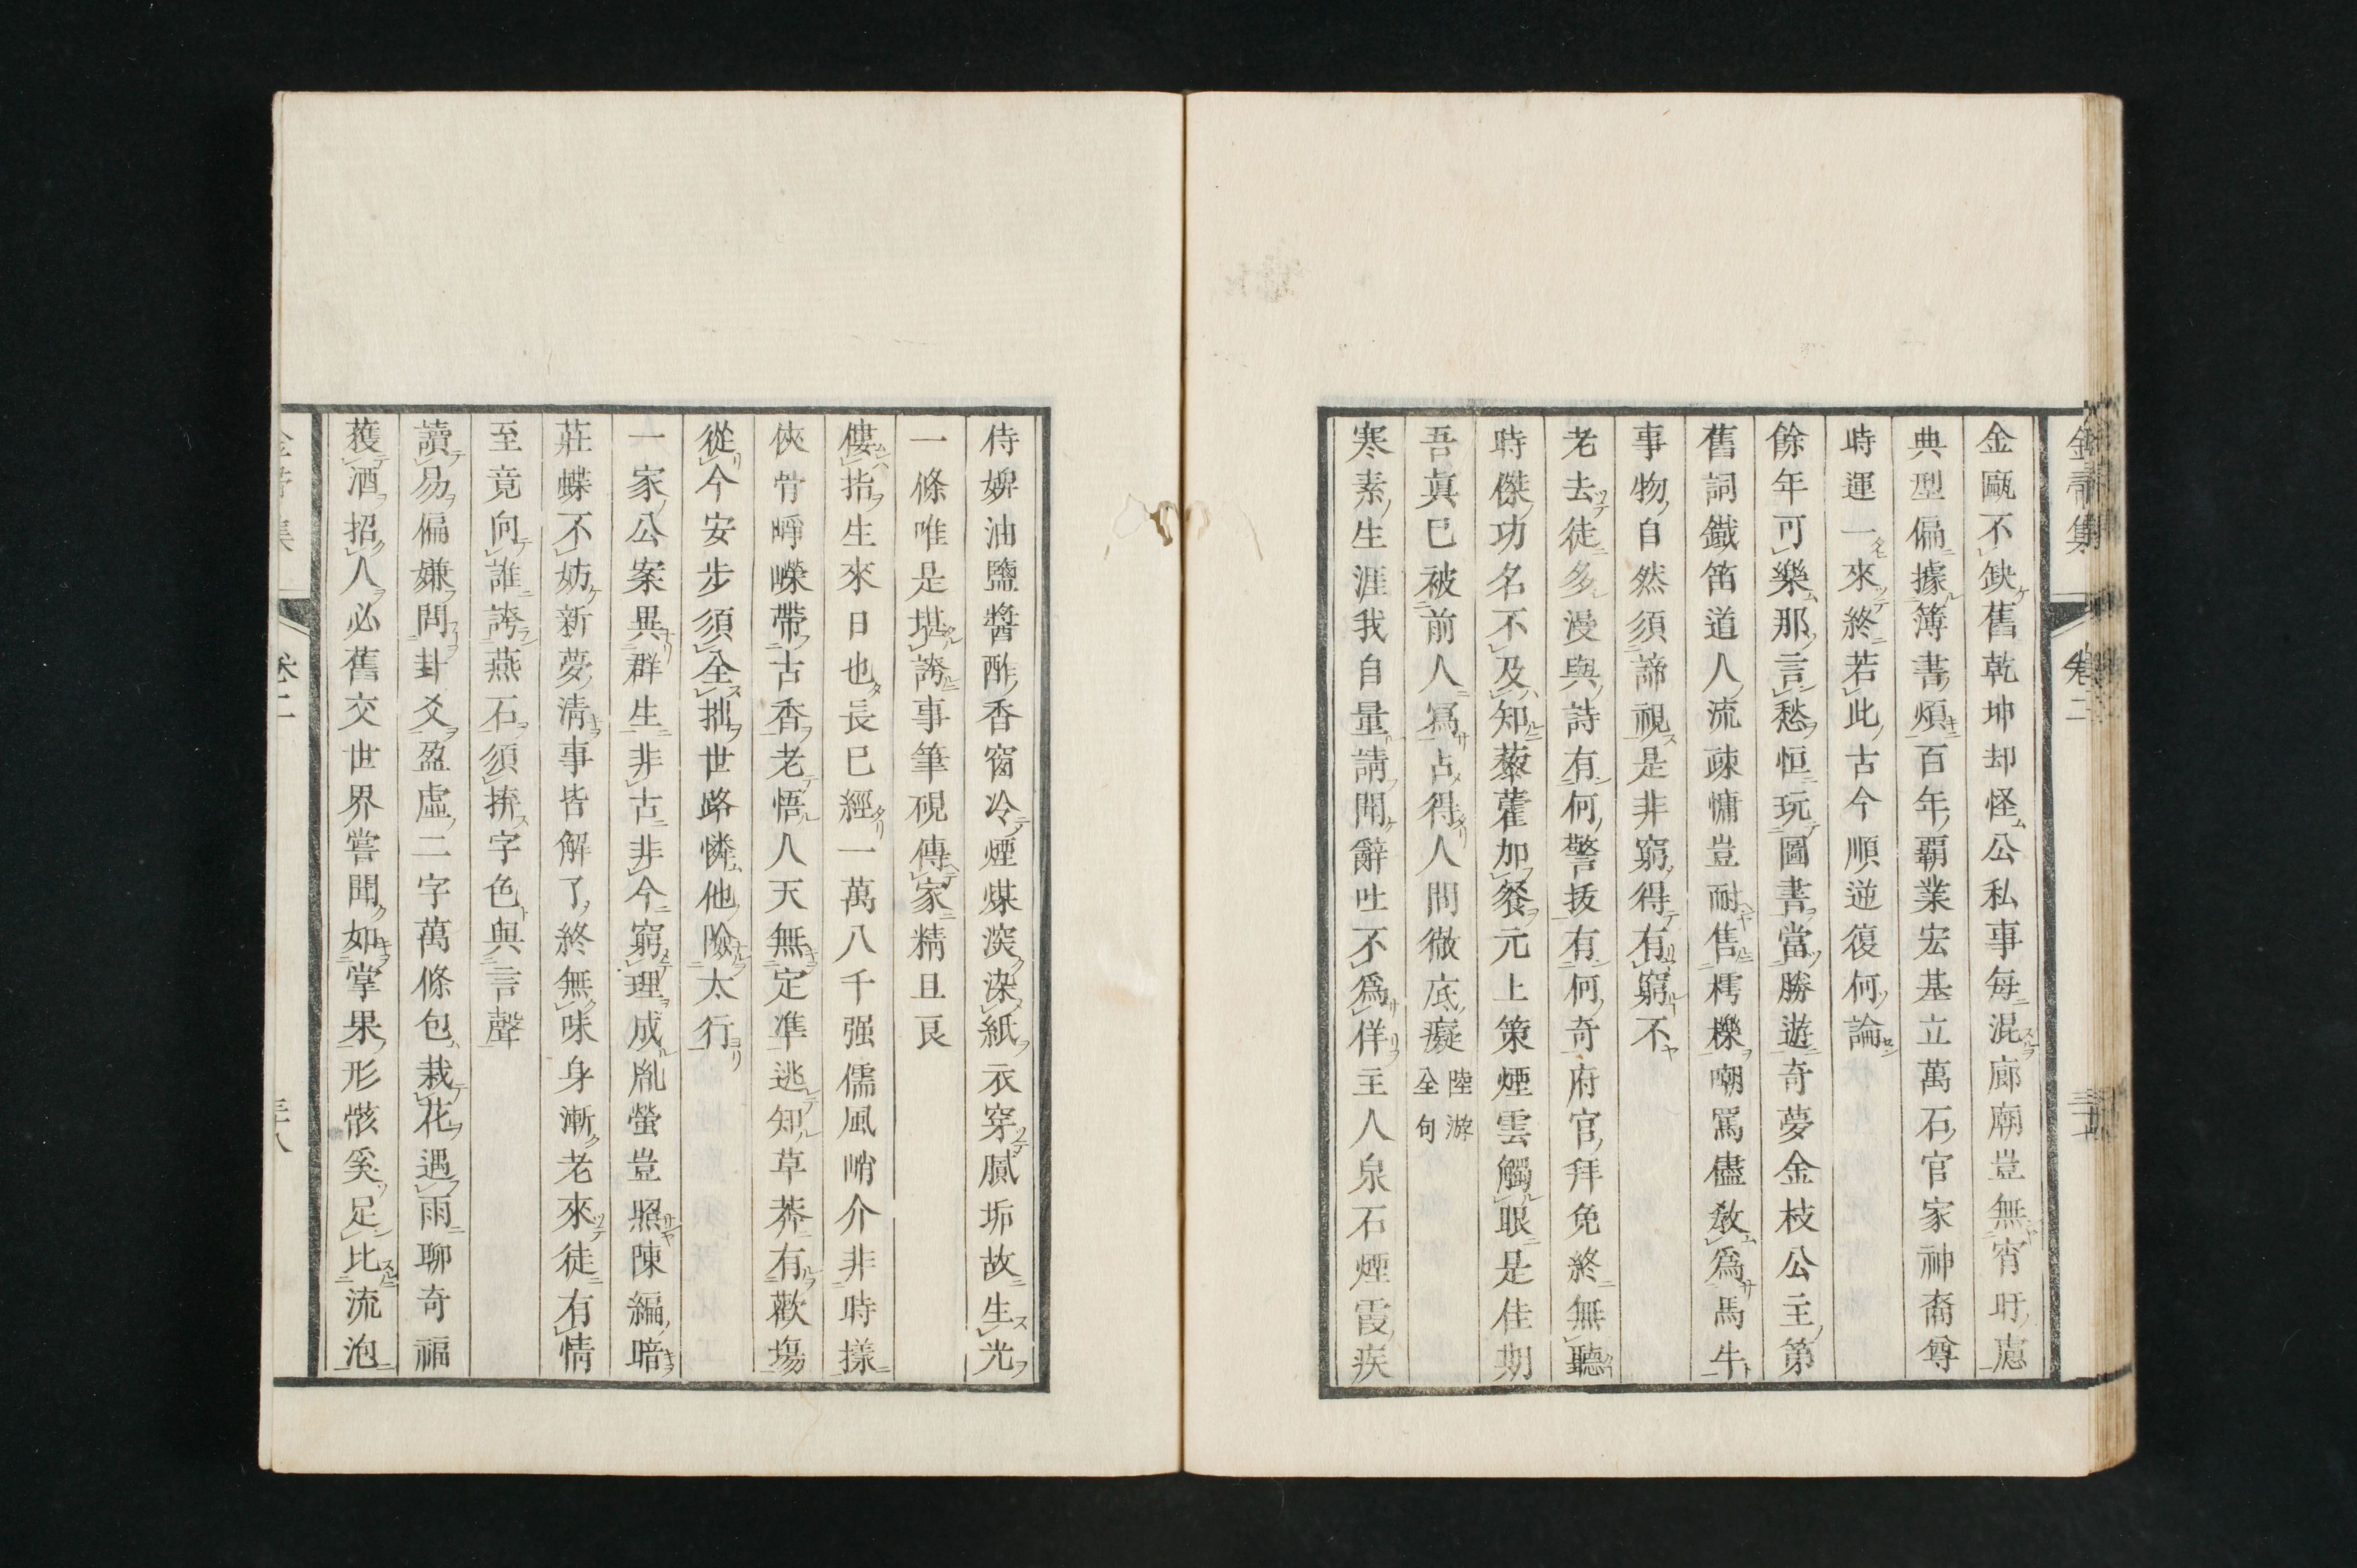 金甌不缺舊乾坤却怪公私事每混廊廟豈無宵旰慮
典型偏據簿書煩百年覇業宏基立萬石官家神裔尊
時運一來終若此古今順逆復何論
餘年可樂那言愁恒玩圖書當勝遊奇夢金枝公主第
舊詞鐵笛道人流疎慵豈耐售樗櫟嘲罵儘教爲馬牛
事物自然須諦視是非窮得有窮不
老去徒多漫與詩有何警拔有何奇府官拜免終無聽
時傑功名不及知藜藿加餐元上策煙雲觸眼是佳期
吾眞已被前人寫占得人間徹底癡陸游全句
寒素生涯我自量請聞辭吐不爲佯主人泉石煙霞疾
侍婢油鹽醬酢香窗冷煙煤深染紙衣穿膩垢故生光
一條唯是堪誇事筆硯傳家精且良
僂指生來日也長已經一萬八千强儒風峭介非時樣
俠骨崢嶸帶古香老悟人天無定準逃知草莽有歡場
從今安步須全拙世路憐他險太行
一家公案異群生非古非今窮理成胤螢豈照陳編暗
莊蝶不妨新夢淸事皆解了終無味身漸老來徒有情
至竟向誰誇燕石須拚字色與言聲
讀易偏嫌問卦爻盈虛二字萬條包栽花遇雨聊奇福
蓛酒招人必舊交世界嘗聞如掌果形骸奚足比流泡
卷二